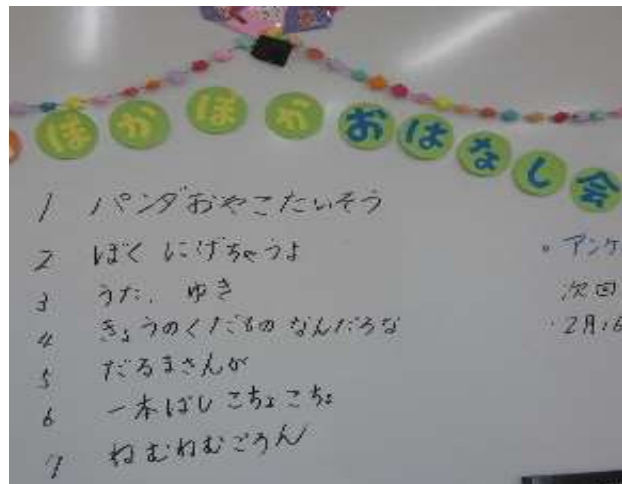 ほかほかおはなし会
1 パンダおやこたいそう
2 ぼくにげちゃうよ
3 うた、ゆき
4 きょうのくだもの なんだろな
5 だるまさんが
6 一本ばし こちょこちょ
7 ねむねむごろん
・アンケ
次回
・2月16